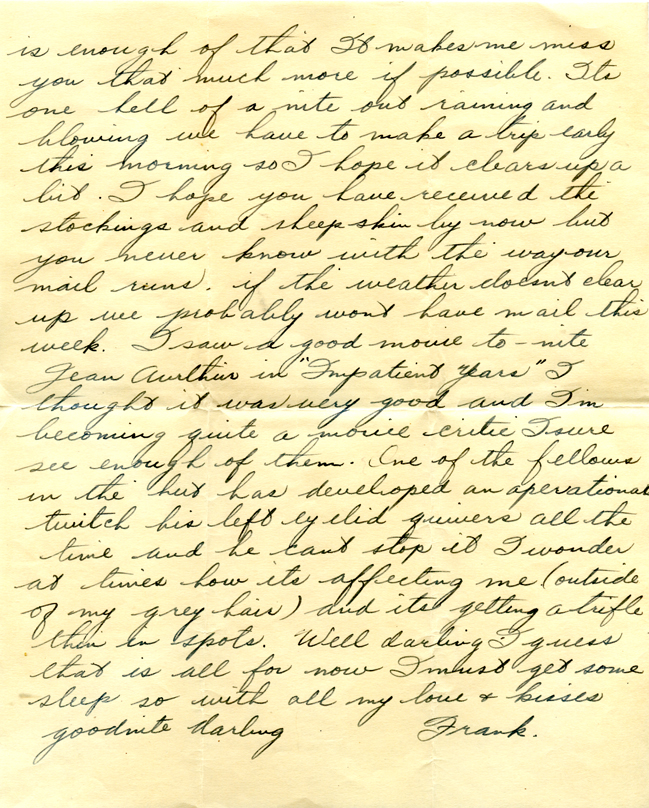 is enough of that It makes me miss
you that much more if possible. Its
one hell of a nite out raining and
blowing we have to make a trip early
this morning so I hope it clears up a
bit. I hope you have received the
stockings and sheepskin by now but
you never know with the way our
mail runs. if the weather doesnt clear
up we probably wont have mail this
week. I saw a good movie to-nite
Jean Aurthur in "Impatient Years" I
thought it was very good and I'm
becoming quite a movie critic I sure
see enough of them. One of the fellows
in the hut has developed an operational
twitch his left eyelid quivers all the
time and he cant stop it I wonder
at times how its affecting me (outside
of my grey hair) and its getting a trifle
thin in spots. Well darling I guess
that is all for now I must get some
sleep so with all my love & kisses
goodnite darling Frank.